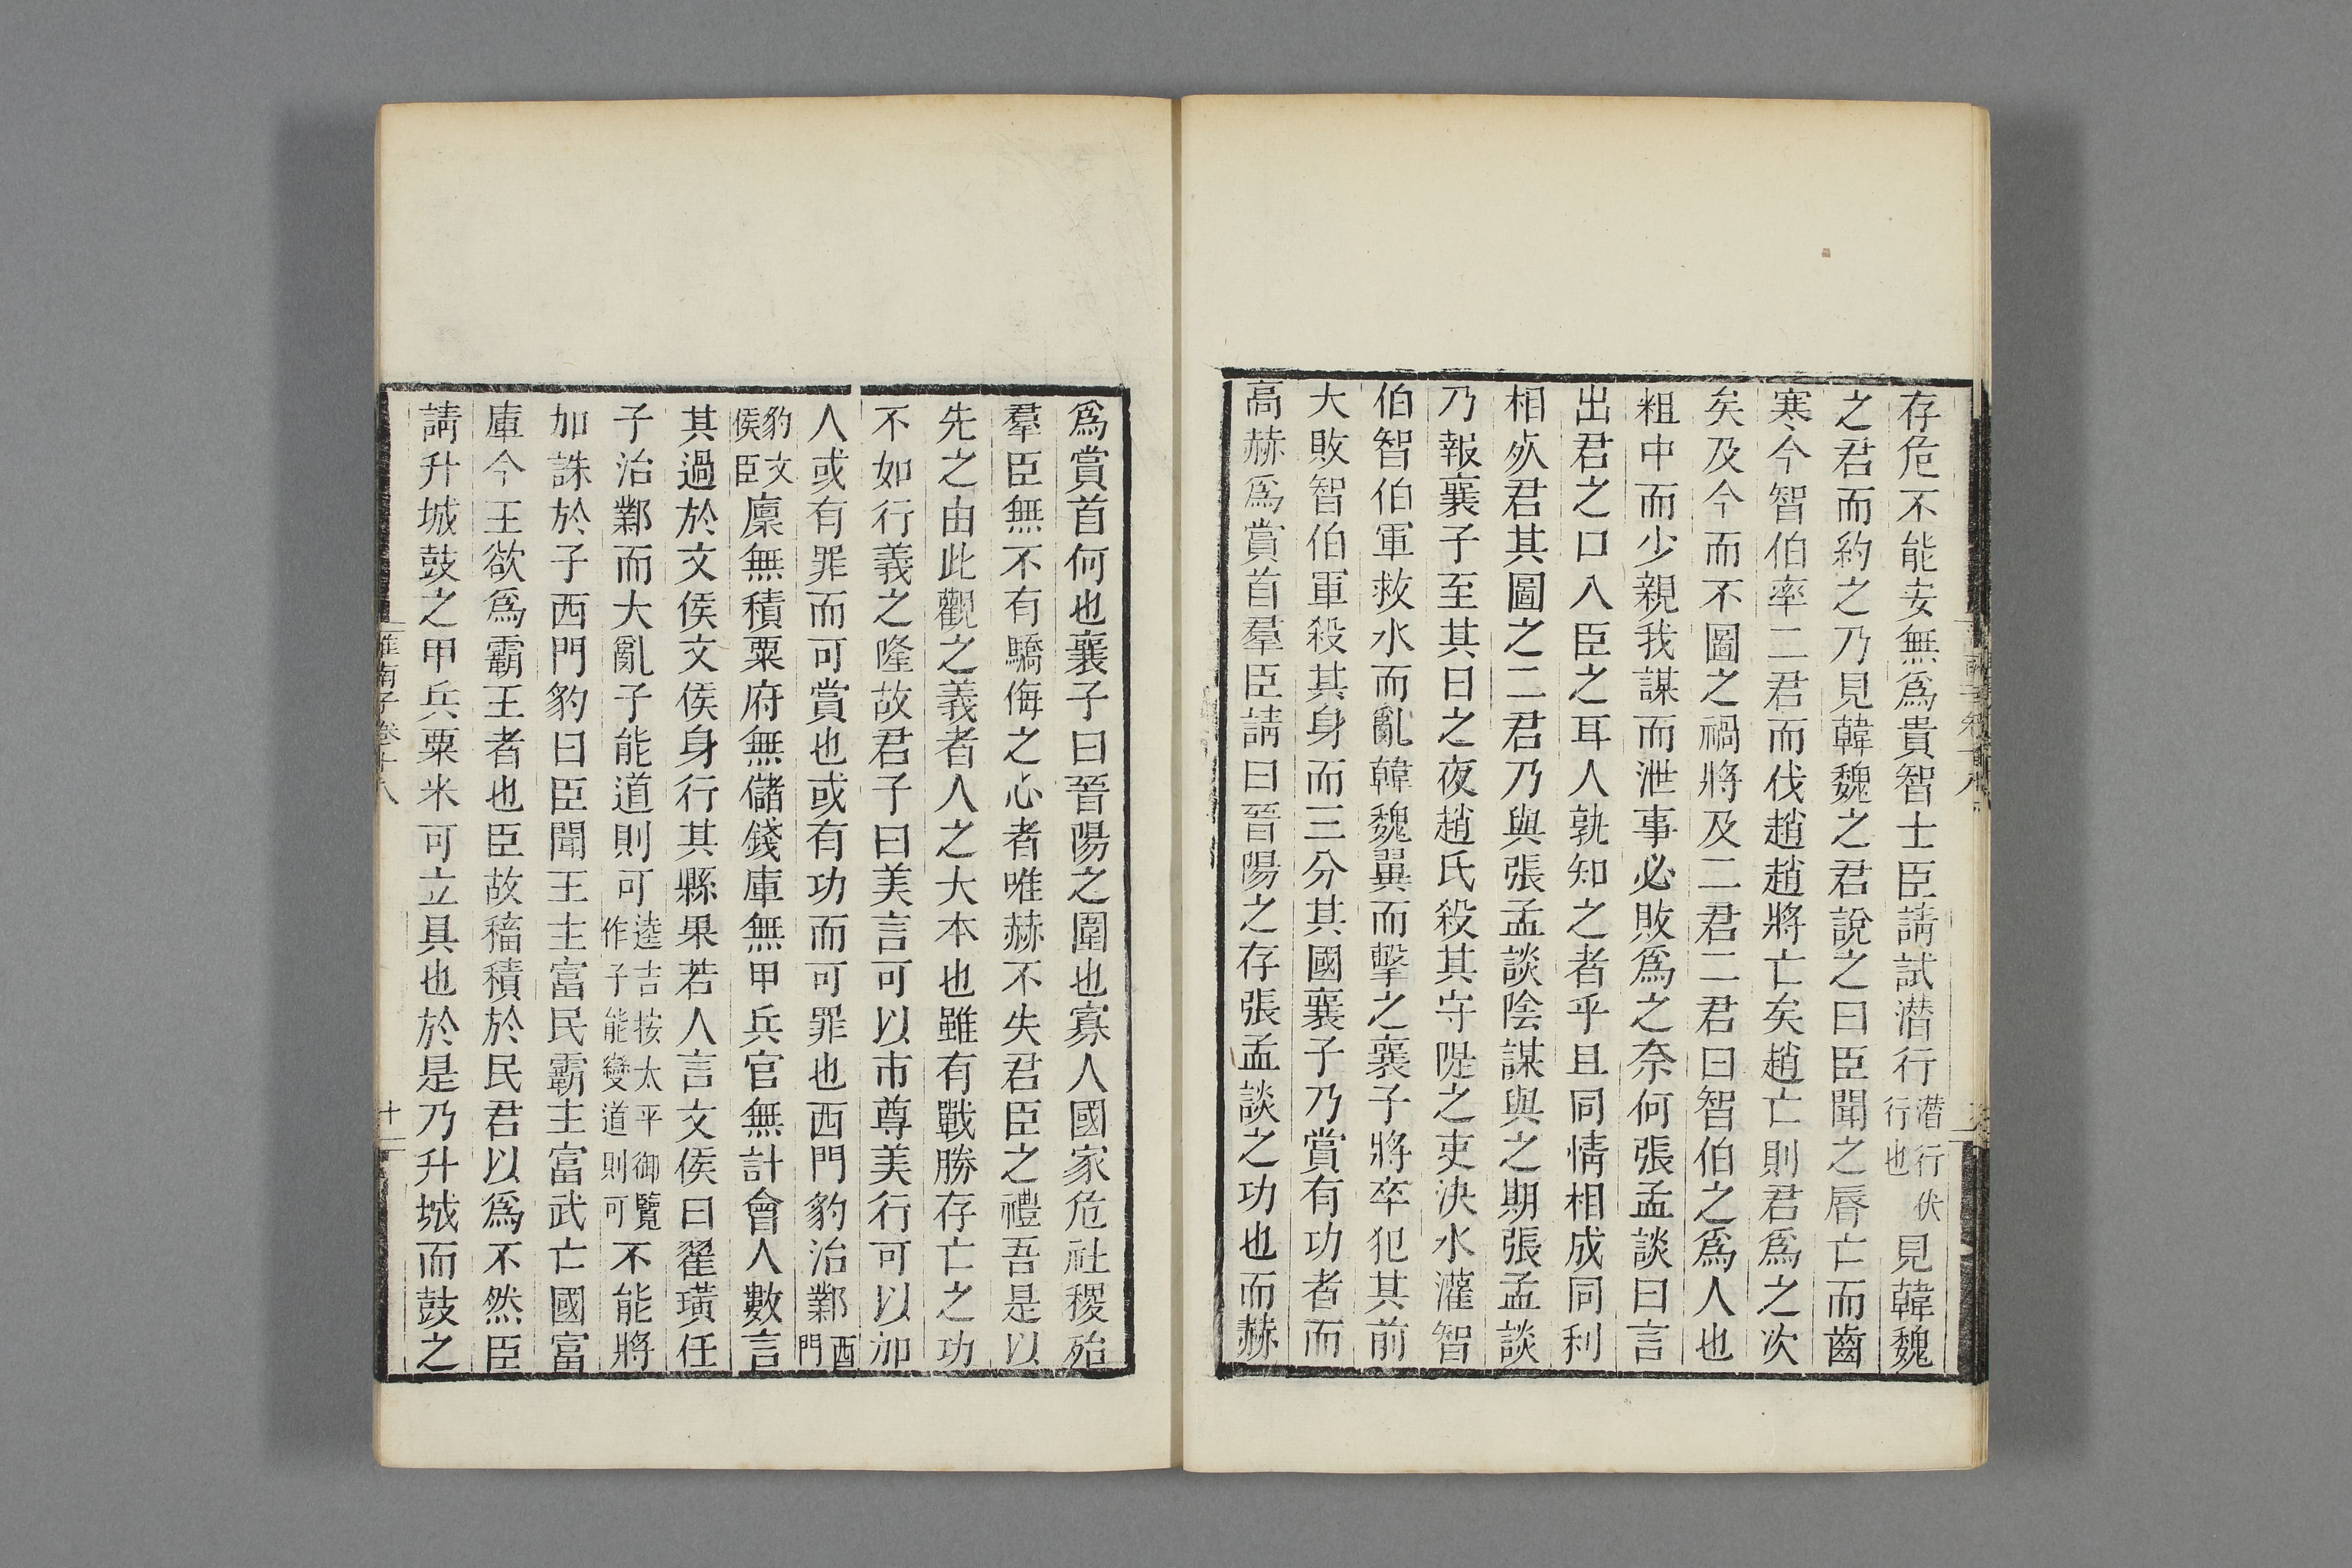 存危不能安無爲貴智士臣請試潛行潛行伏行也見韓魏
之君而約之乃見韓魏之君說之曰臣聞之脣亡而齒
寒今智伯率二君而伐趙趙將亡矣趙亡則君爲之次
矣及今而不圖之禍將及二君二君曰智伯之爲人也
粗中而少親我謀而泄事必敗爲之奈何張孟談曰言
出君之口入臣之耳人孰知之者乎且同情相成同利
相死君其圖之二君乃與張孟談陰謀與之期張孟談
乃報襄子至其日之夜趙氏殺其守隄之吏決水灌智
伯智伯軍救水而亂韓魏翼而擊之襄子將卒犯其前
大敗智伯軍殺其身而三分其國襄子乃賞有功者而
高赫爲賞首羣臣請曰晉陽之存張孟談之功也而赫
爲賞首何也襄子曰晉陽之圍也寡人國家危社稷殆
羣臣無不有驕侮之心者唯赫不失君臣之禮吾是以
先之由此觀之義者人之大本也雖有戰勝存亡之功
不如行義之隆故君子曰美言可以市尊美行可以加
人或有罪而可賞也或有功而可罪也西門豹治鄴西門
豹文侯臣廩無積粟府無儲錢庫無甲兵官無計會人數言
其過於文侯文侯身行其縣果若人言文侯曰翟璜任
子治鄴而大亂子能道則可逵吉按太平御覽作子能變道則可不能將
加誅於子西門豹曰臣聞王主富民霸主富武亡國富
庫今王欲爲霸王者也臣故稸積於民君以爲不然臣
請升城鼓之甲兵粟米可立具也於是乃升城而鼓之
淮南子卷十八
十一